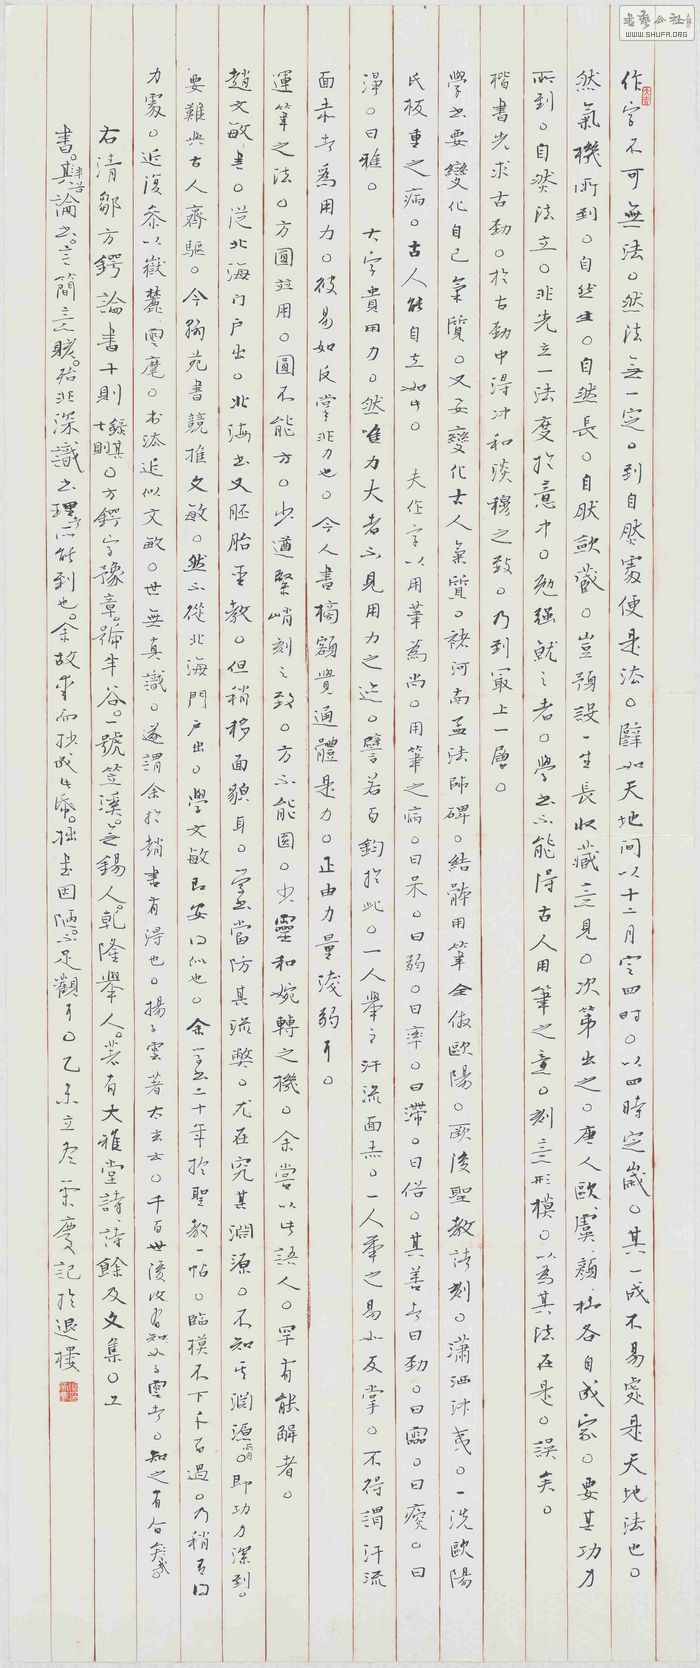 書藝公社
WWW.SHUFA.ORG
作字不可無法。然法無一定。到自然處便是法。譬如天地間以十二月定四時。以四時定歲。其一成不易處是天地法也。
然氣機所到。自然生。自然長。自然斂藏。豈預設一生長收藏之見。次第出之。唐人歐、虞、顏、柳各自成家。要其功力
所到。自然法立。非先立一法度於意中。勉強就之者。學書不能得古人用筆之意。刻畫形模。以為其法在是。誤矣。
楷書先求古勁。於古勁中得沖和淡穆之致。乃到最上一層。
學書要變化自己氣質。又要變化古人氣質。褚河南孟法師碑。結體用筆全倣歐陽。厥後聖教諸刻。瀟洒沖夷。一洗歐陽
氏板重之病。古人能自立如此。 夫作字以用筆為尚。用筆之病。曰呆。曰弱。曰率。曰滯。曰俗。其善者曰勁。曰靈。曰瘦。曰
淨。曰雅。 大字貴用力。然唯力大者不見用力之迹。譬若百鈞於此。一人舉之汗流面赤。一人舉之易如反掌。不得謂汗流
面赤者為用力。彼易如反掌非力也。今人書橋額覺通體是力。正由力量淺弱耳。
運筆之法。方圓並用。圓不能方。少遒緊峭刻之致。方不能圓。少靈和婉轉之機。余嘗以此語人。罕有能解者。
趙文敏書。從北海門戶出。北海書又胚胎聖教。但稍移面貌耳。學書當防其流弊。尤在究其淵源。不知其淵源。即功力深到。
要難與古人齊驅。今翰苑書競推文敏。然不從北海門戶出。學文敏即安得似也。余學書二十年於聖教一帖。臨模不下千百過。乃稍有得
力處。近復參以嶽麓雲麾。書法近似文敏。世無真識。遂謂余於趙書有得也。揚子雲著太玄云。千百世後必有知子雲者。知之有合矣哉。
右清鄒方鍔論書十則錄其七則。方鍔字豫章。號半谷。一號笠溪。無錫人。乾隆舉人。著有大雅堂詩、詩餘及文集。工
書。其論書。言簡意賅。殆非深識書理不能到也。余故愛而抄成此幅。拙書固陋。不足觀耳。乙未立冬榮慶記於退樓